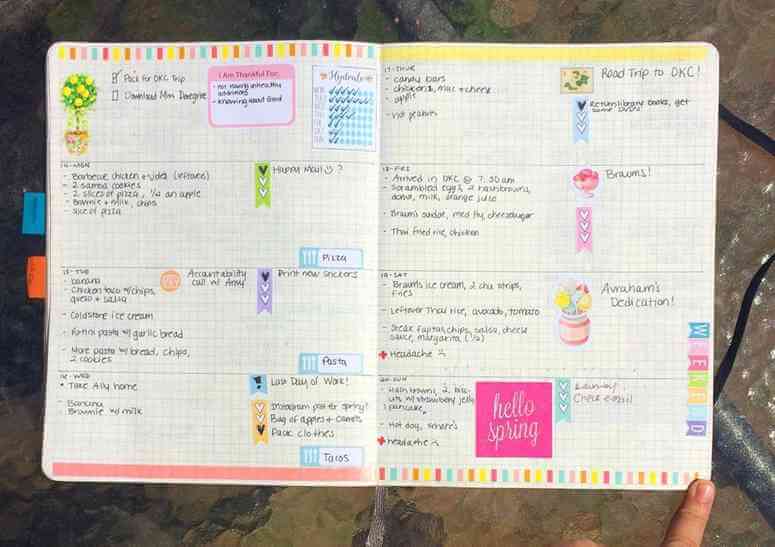 Pack for OKC Trip
Download Mini
I Am Thankful For:
- not having unhealthy
- knowing about food
Hydrate
14-MON
- Barbecue chicken + (leftovers)
- 2 samoa cookies
- 2 slices of pizza, 1/2 an apple
- Brownie + milk, chips
- slice of pizza
Happy Mail ?
Pizza
15-TUE
- banana
- Chicken taco w/chips,
queso + salsa
- Coldstone ice cream
- Rotini pasta w/ garlic bread
- More pasta w/ bread, chips,
2 cookies
Accountability
call w/ Amy
Print new stickers
Pasta
16-WED
Take Ally home
- Banana
- Brownie w/ milk
Last Day of Work!
Instagram post for spring?
Bag of apples + carrots
Pack clothes
Tacos
17-THUR
- candy bars
- chicken, mac + cheese
- apple
- hot peanuts
Road Trip to OKC!
Return library books, get
some
18-FRI
- Arrived in OKC @ 7:30am
- Scrambled eggs, 2 hashbrowns,
donut, milk, orange juice
- Braum's sundae, med fry, cheeseburger
- Thai fried rice, chicken
Braums!
19-SAT
- Braum's ice cream, 2 chx strips,
fries
- Leftover Thai rice, avocado, tomato
- Steak fajitas, chips, salsa, cheese
sauce, margarita (1/2)
+ Headache
Avraham's
Dedication!
WEEKEND
20-SUN
- Hash browns, 2 bisc-
uits w/ strawberry jelly
1 pancake
- Hot dog, s'mores
+ headache
hello
spring
Laundry
Check email